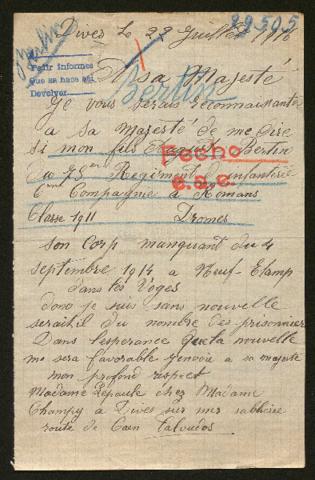 Dives Le 22 Juillet 1916
29505
Bertin
Pedir informes
Que se hace así
Devolver
A sa Majesté
Bertin
Je vous serais reconnaissante
a sa Majesté de me dire
si mon fils Bertin
Hecho
au 75em Regiment d'infanterie
e.s.e.
6em Compagnie a Romans
Classe 1911 Dromes
son Corp manquant du 4
septembre 1914 a Neuf-Etamp
dans les Voges
donc je suis sans nouvelle
seraitil du nombre des prisonnier
Dans l'esperance que ta nouvelle
me sera favorable j'envoie a sa majesté
mon profond respect
Madame Lepaule chez Madame
Champy a Dives sur mer sablière
route de Caen Calvados